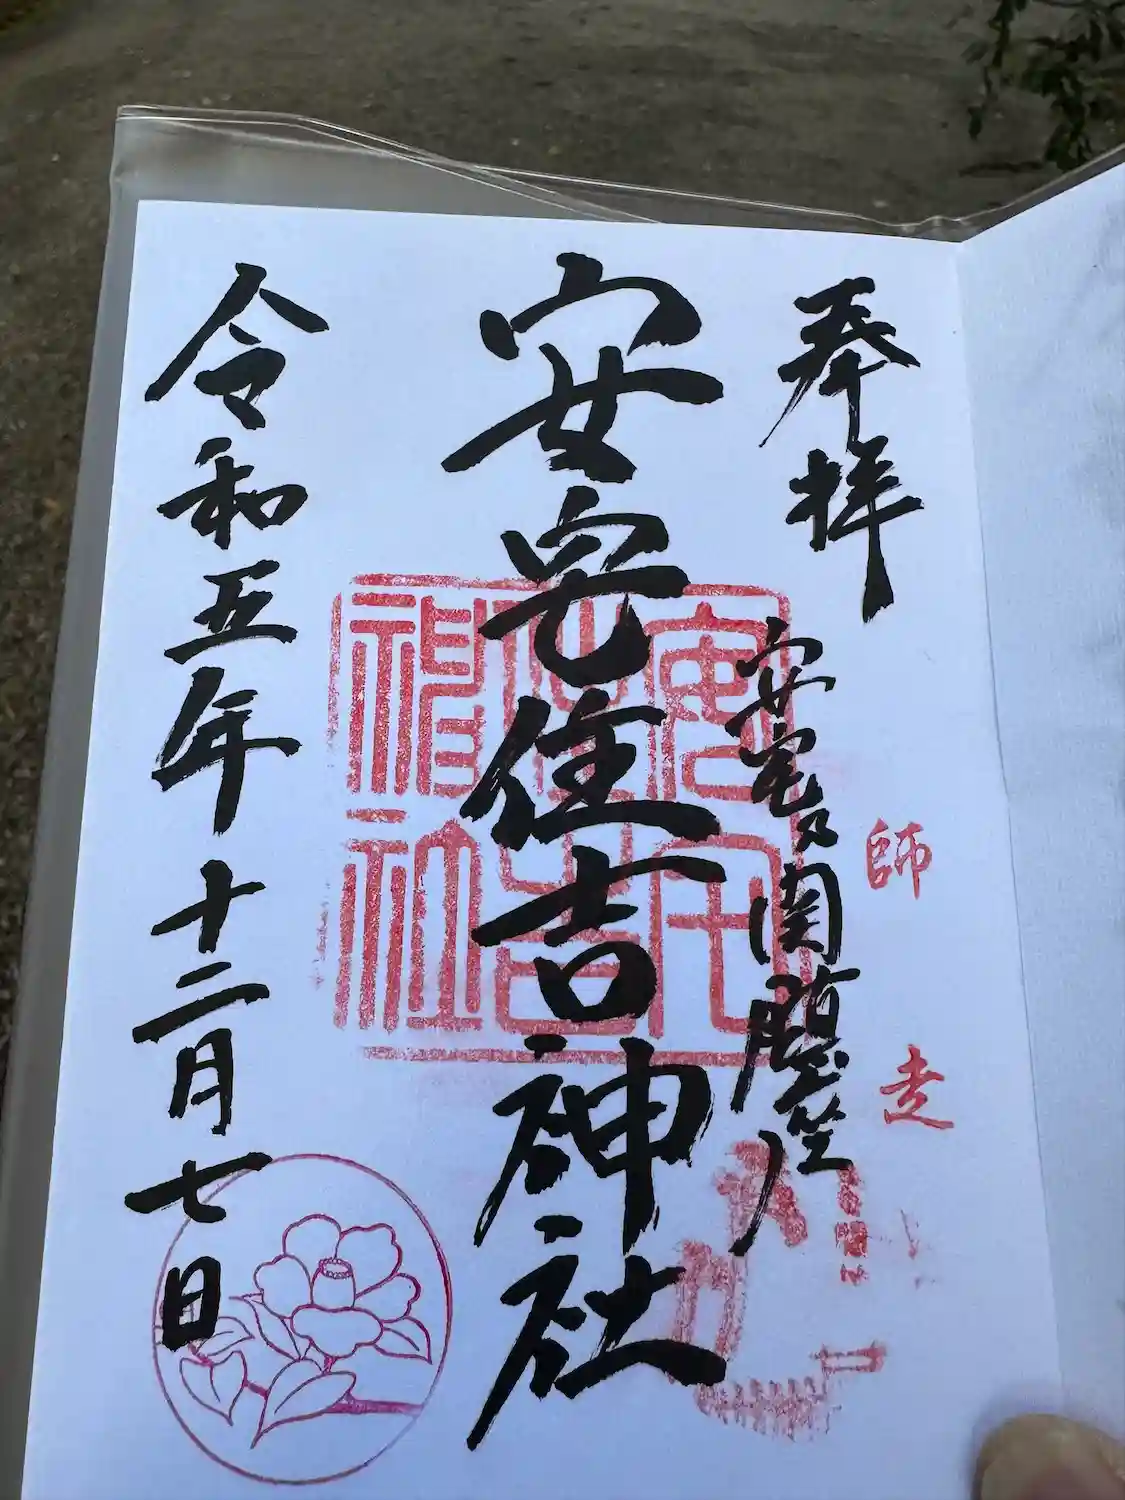 奉拝
師走
安宅乃関鎮座
安宅住吉神社
安宅
住吉
神社
令和五年十二月七日